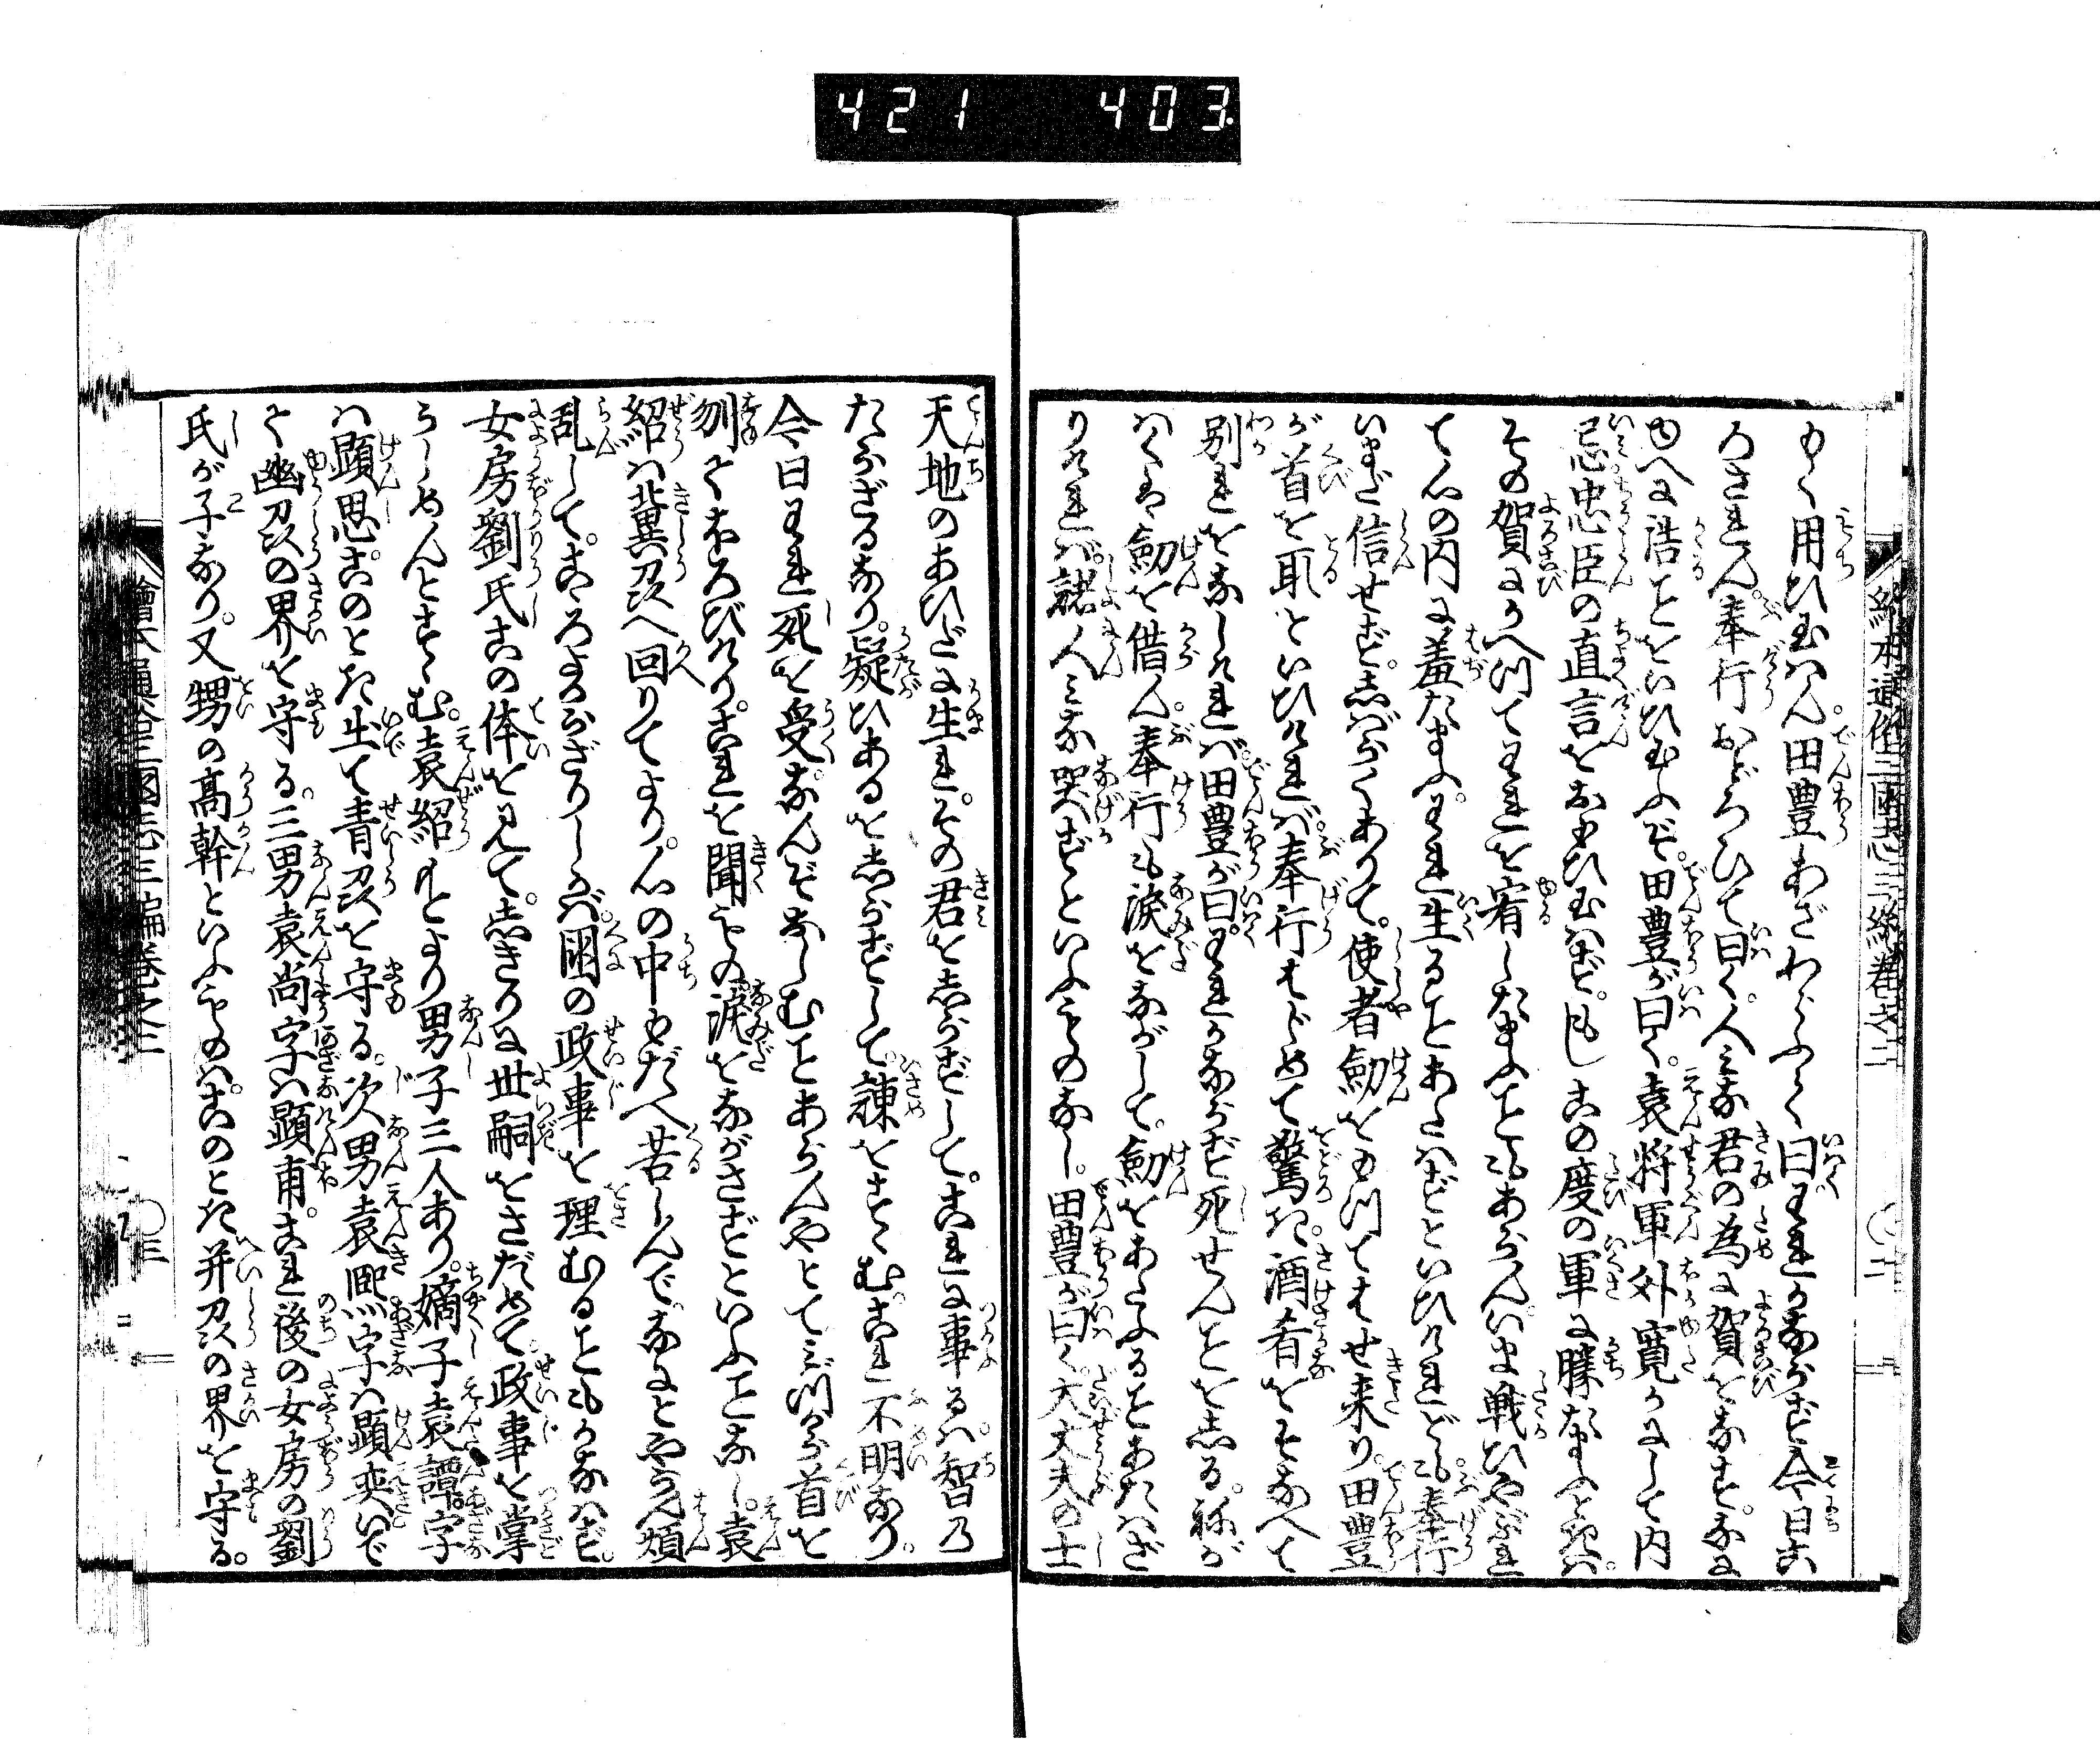 421 403
もく用ひ玉はん。田豊わざわらふく曰われかならず今日こ
ろされん。奉行おどろひて曰く。人みな君の為に賀をなす。なに
ゆへに浩ことをいひ玉ふぞ。田豊が曰く。袁将軍外寛かにして内
忌忠臣の直言をおもひ玉はず。もしこの度の軍に勝たまふときは。
その賀にかへつてわれを宥したまふこともあらん。いま戦ひやぶれ
て心の内に羞たまふ。われ生ることあたはずといひければども。奉行
いまだ信せず。しばらくありて。使者剣をもつてはせ来り。田豊
が首を取といひければ。奉行はじめて驚き。酒肴をそなへて
別れをなしければ。田豊が曰。われかならず死せんことをしる。ねが
はくは剣を借ん。奉行も涙をながして。剣をあたふることあたはざ
りければ。諸人みな哭ずといふものなし。田豊が曰く。大丈夫の士
天地のあひだに生れ。その君をしらずして。これに事るは智の
たらざるなり。疑ひあるをしらずして。諌をすゝむ。これ不明なり。
今日われ死を受。なんぞおしむことあらんやとてみづから首を
刎てほろびけり。これを聞もの涙をながさずといふことなし。袁
紹は冀州へ回りてより。心の中もだへ苦しんで。なにとやらん煩
乱して。こゝろよからざりしかば。国の政事を理むることもかなはず。
女房劉氏この体を見て。しきりに世嗣をさだめて。政事を掌
らしめんとすゝむ。袁紹もとより男子三人あり。嫡子袁譚。字
は顕思このとき出て青州を守る。次男袁熈字は顕奕いで
て幽州の界を守る。三男袁尚字は顕甫。これ後の女房の劉
氏が子なり。又甥の高幹といふものは。このとき并州の界を守る。
絵本通俗三国志三編巻之三